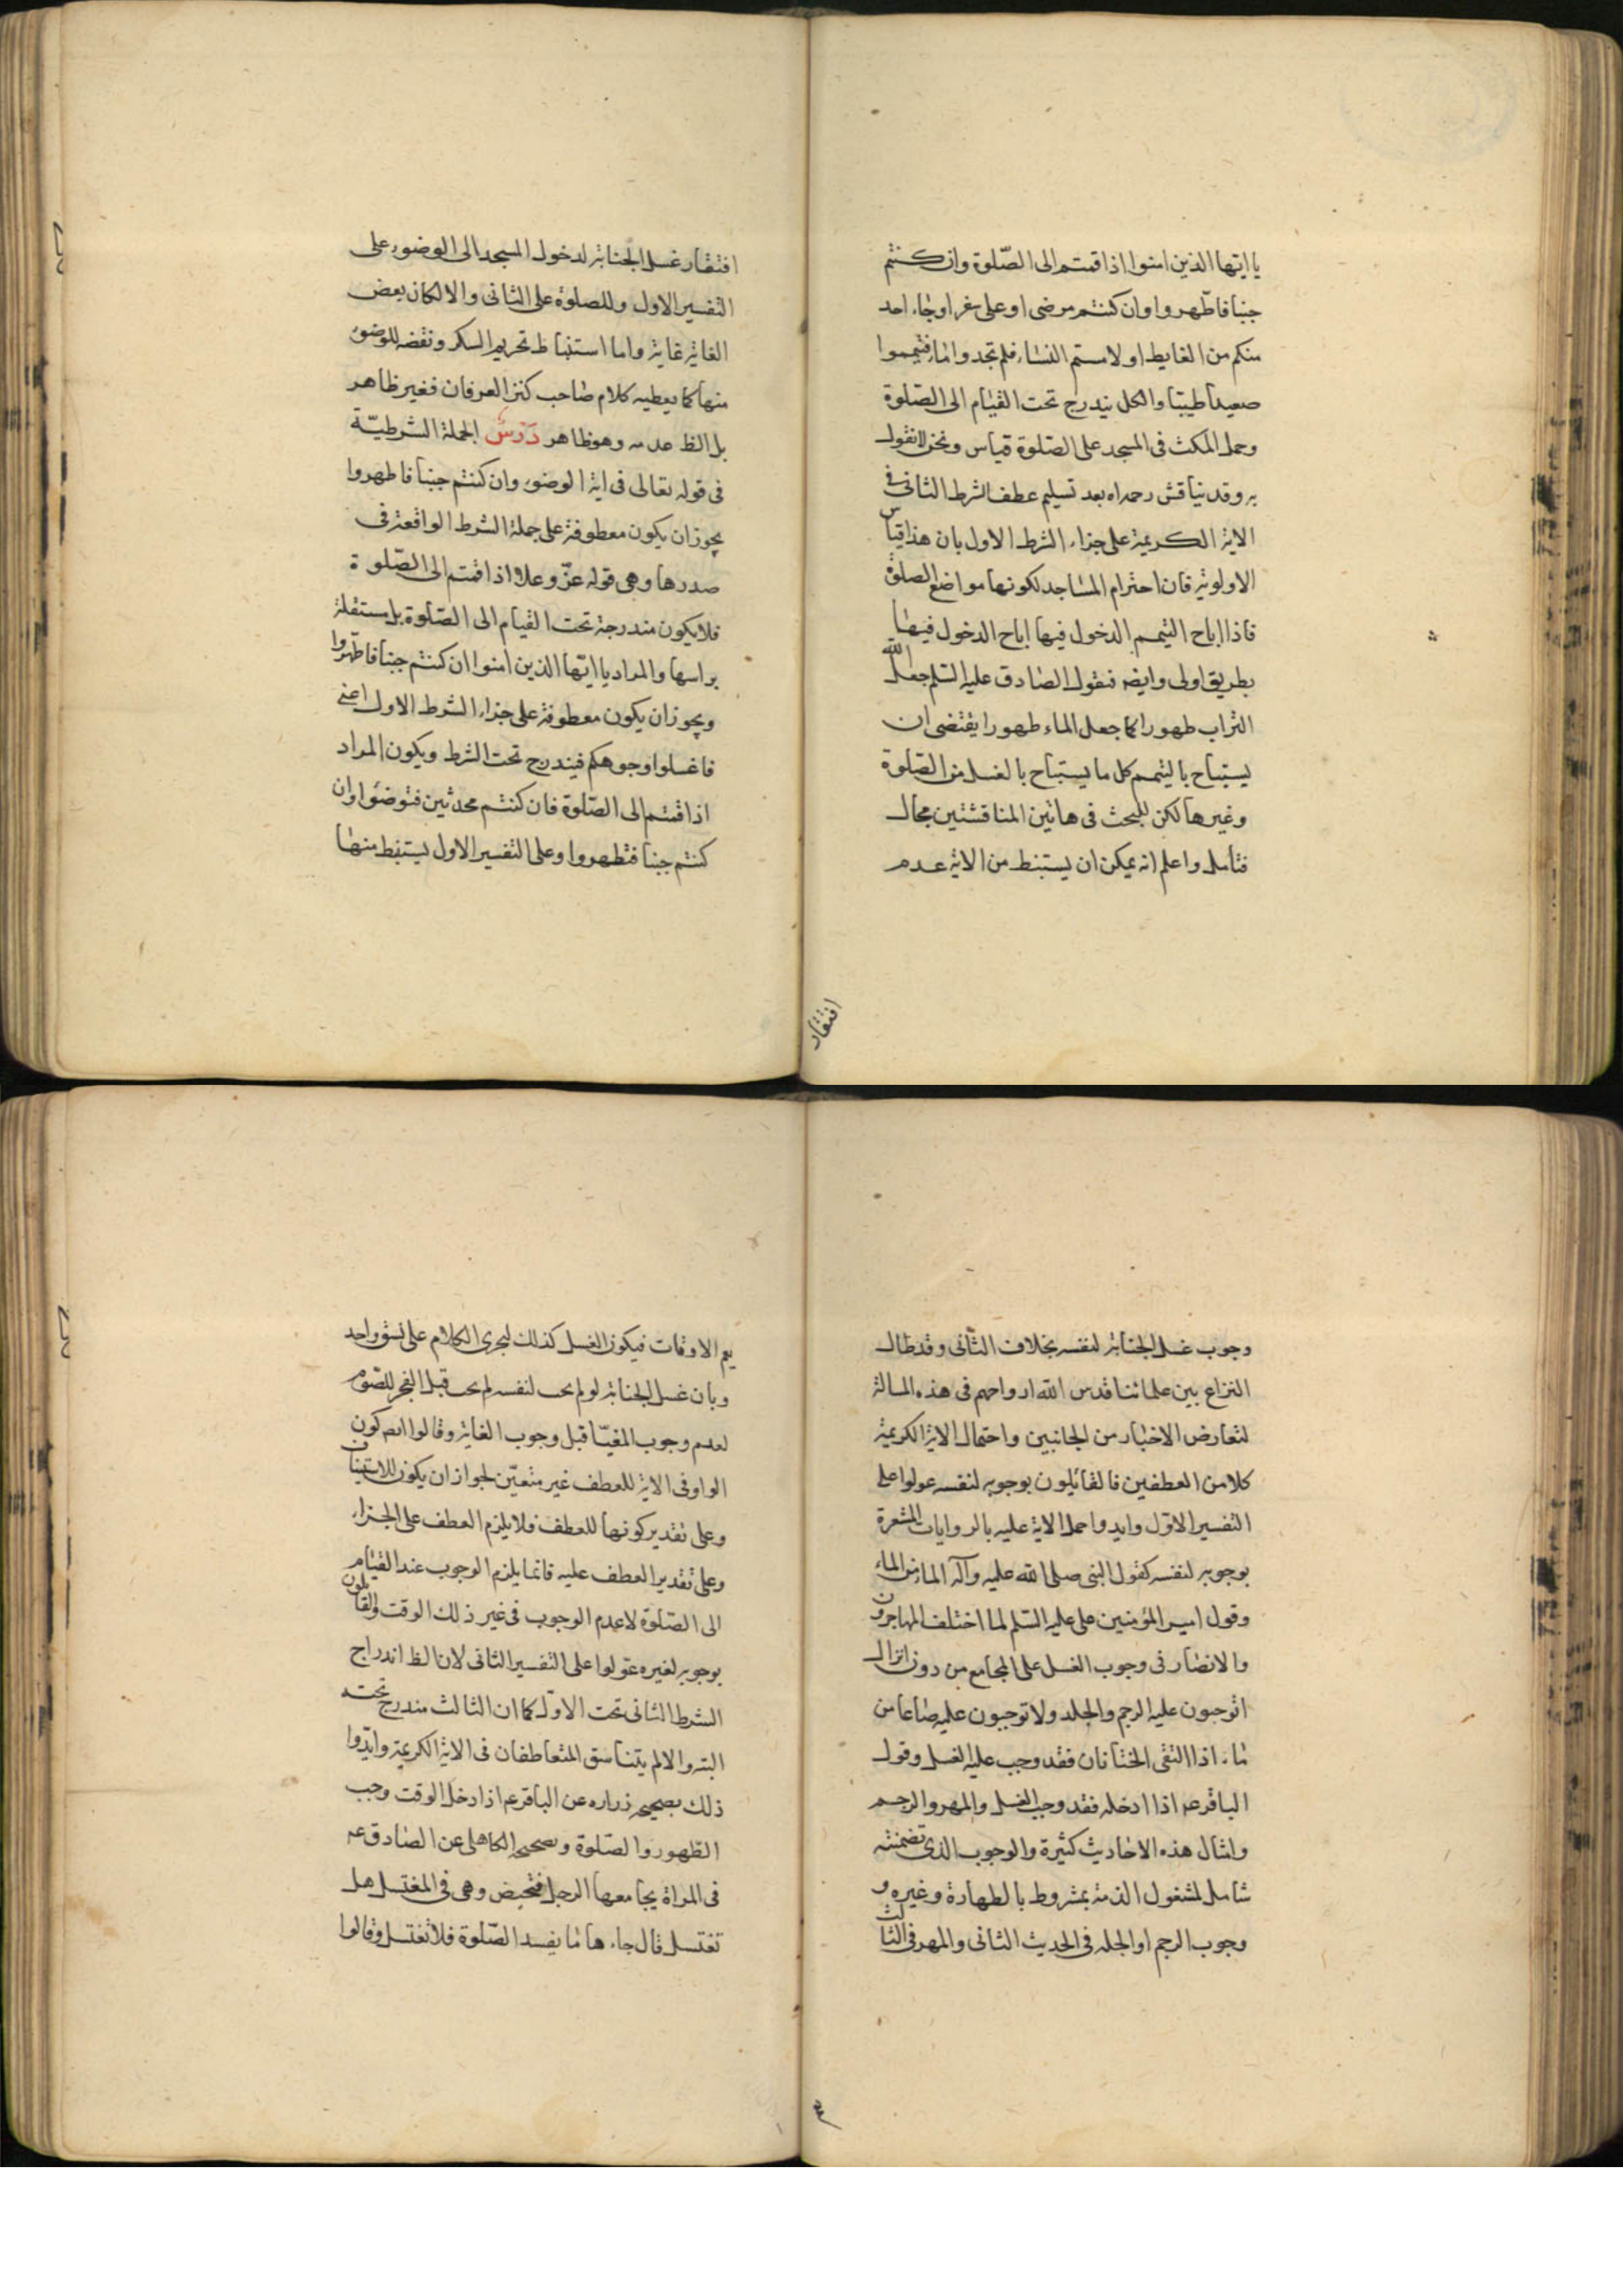 يا ايها الذين امنوا اذا قمتم الى الصّلوة وان كنتم
جنبا فاطّهروا وان كنتم مرضى او على سفر او جاء احد
منكم من الغايط او لامستم النساء فلم تجدوا ماء فتيمموا
صعيدا طيبا والكل يندرج تحت القيام الى الصّلوة
وحمل المكث فى المسجد على الصّلوة قياس ونحن لانقول
به وقد يناقش رحمه اه بعد تسليم عطف الشرط الثانى فى
الاية الكريمة على جزاء الشرط الاول بان هذا قياس
الاولوية فان احترام المساجد لكونها مواضع الصلوة
فاذا اباح التيمم الدخول فيها اباح الدخول فيها
بطريق اولى وايضه فقول الصادق عليه السلم جعل الله
التراب طهورا كما جعل الماء طهورا يقتضى ان
يستباح بالتيمم كل ما يستباح بالغسل من الصّلوة
وغيرها لكن للبحث فى هاتين المناقشتين مجال
فتأمل واعلم انه يمكن ان يستنبط من الاية عدم
افتقار
افتقار غسل الجنابة لدخول المسجد الى الوضوء على
التفسير الاول وللصلوة على الثانى والا لكان بعض
الغاية غاية واما استنباط تحريم السكر ونقضه للوضوء
منها كما يعطيه كلام صاحب كنز العرفان فغير ظاهر
بل الظ عدمه وهو ظاهر درس الجملة الشرطيّة
فى قوله تعالى فى اية الوضوء وان كنتم جنبا فاطهروا
يجوز ان يكون معطوفة على جملة الشرط الواقعة فى
صدرها وهى قوله عزّ وعلا اذا قمتم الى الصّلوة
فلا يكون مندرجة تحت القيام الى الصّلوة بل مستقلة
براسها والمراد يا ايّها الذين امنوا ان كنتم جنبا فاطّهروا
ويجوز ان يكون معطوفة على جزاء الشرط الاول اعنى
فاغسلوا وجوهكم فيندرج تحت الشرط ويكون المراد
اذا قمتم الى الصّلوة فان كنتم محدثين فتوضئوا وان
كنتم جنبا فتطهروا وعلى التفسير الاول يستنبط منها
وجوب غسل الجنابة لنفسه بخلاف الثّانى وقد طال
النزاع بين علمائنا قدس الله ارواحهم فى هذه المسالة
لتعارض الاخبار من الجانبين واحتمال الاية الكريمة
كلا من العطفين فالقائلون بوجوبه لنفسه عولوا على
التفسير الاوّل وايدوا حمل الاية عليه بالروايات المشعرة
بوجوبه لنفسه كقول النبى صلى الله عليه وآله الماء من الماء
وقول امير المؤمنين على عليه السّلم لما اختلف المهاجرون
والانصار فى وجوب الغسل على المجامع من دون انزال
اتوجبون عليه الرجم والجلد ولا توجبون عليه صاعا من
ماء اذا التقى الختانان فقد وجب عليه الغسل وقول
الباقر عه اذا ادخله فقد وجب الغسل والمهر والرجم
وامثال هذه الاحاديث كثيرة والوجوب الذى تضمنته
شامل لمشغول الذمة بمشروط بالطهارة وغيره و
وجوب الرجم او الجلد فى الحديث الثانى والمهر فى الثالث
يعم الاوقات فيكون الغسل كذلك ليجرى الكلام على نسق واحد
وبان غسل الجنابة لو لم يجب لنفسه لم يجب قبل الفجر للصّوم
لعدم وجوب المغيّا قبل وجوب الغاية وقالوا ايضه كون
الواو فى الاية للعطف غير متعيّن لجواز ان يكون للاستيناف
وعلى تقدير كونها للعطف فلا يلزم العطف على الجزاء
وعلى تقدير العطف عليه فانما يلزم الوجوب عند القيام
الى الصّلوة لا عدم الوجوب فى غير ذلك الوقت والقائلون
بوجوبه لغيره عوّلوا على التفسير الثانى لان الظ اندراج
الشرط الثانى تحت الاوّل كما ان الثالث مندرج تحته
البته والا لم يتناسق المتعاطفان فى الاية الكريمة وايّدوا
ذلك بصحيحه زراره عن الباقر عم اذا دخل الوقت وجب
الطهور والصّلوة وصحيحه الكاهلى عن الصادق عه
فى المراة يجامعها الرجل فتحيض وهى فى المغتسل هل
تغتسل قال جاءها ما يفسد الصّلوة فلا تغتسل وقالوا